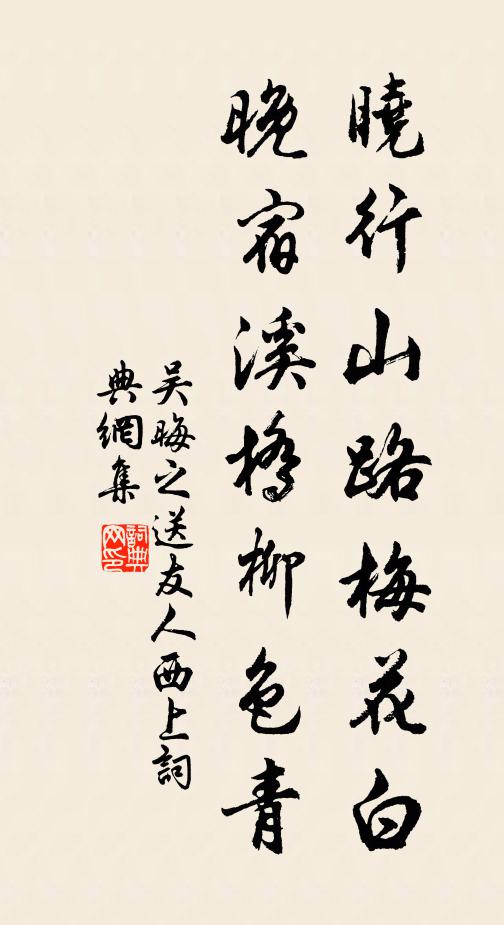 曉行山路梅花白
晚宿溪橋柳色青
吴晦之送友人西上詞
典網集
詞典
网印